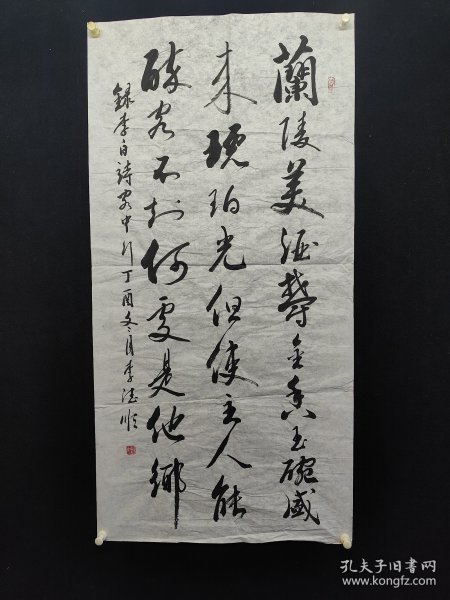 蘭陵美酒鬱金香玉碗盛
来琥珀光但使主人能
醉客不知何處是他鄉
録李白詩客中行丁酉冬月李德順
孔夫子旧书网
www.kongfz.com